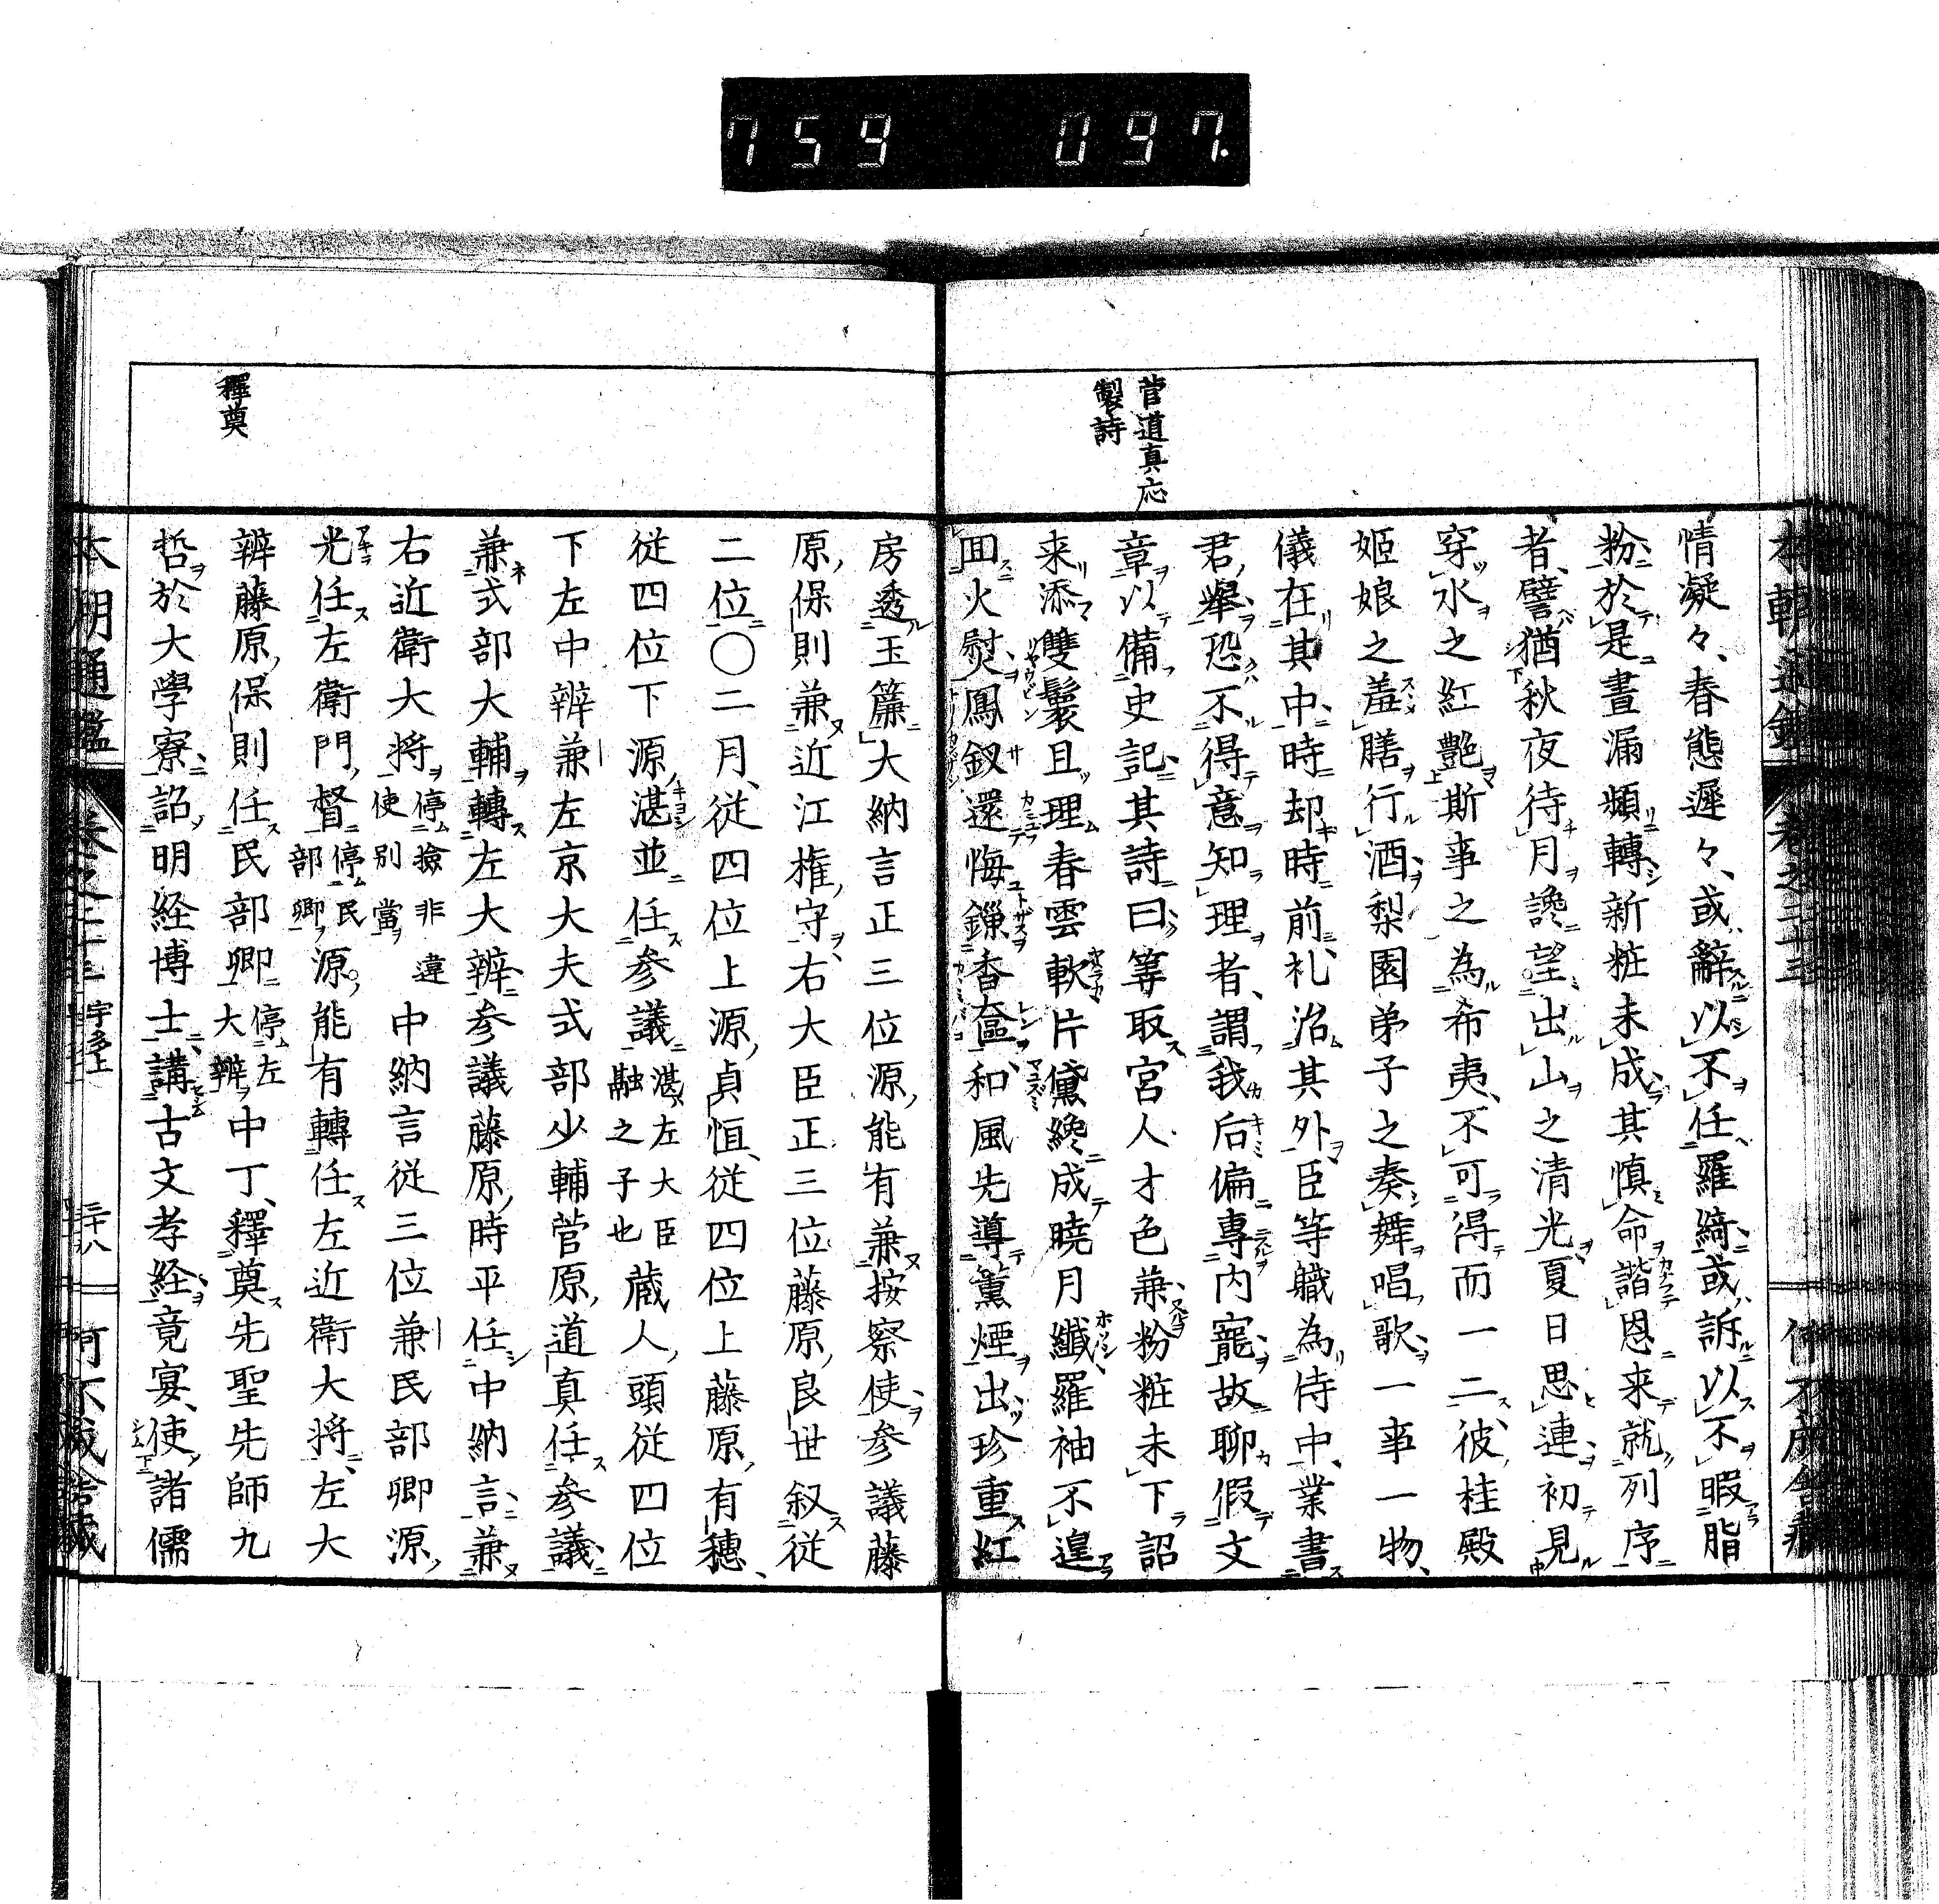 759 097.
菅道真応
製詩
情凝々、春態遲々、或辭以不任羅綺、或訴以不暇脂
粉、於是晝漏頻轉、新粧未成、其慎命諧恩来就列序
者、譬猶秋夜待月、讒望出山之清光、夏日思連、初見
穿水之紅艶、斯事之為希夷、不可得而一二、彼桂殿
姬娘之羞膳行酒、梨園弟子之奏舞唱歌、一事一物、
儀在其中、時却時前、札治其外、臣等職為侍中、業書
君舉、恐不得意知理者、謂我后偏專内寵、故聊假文
章以備史記、其詩曰、等取宮人才色兼、粉粧未下詔
来添、雙鬟且理春雲軟、片黛纔成曉月纖、羅袖不遑
囬火熨、鳳釵還悔鏁香奩、和風先導薫煙出、珍重紅
房透玉簾、大納言正三位源能有兼按察使、参議藤
原保則兼近江權守、右大臣正三位藤原良世叙従
二位〇二月、従四位上源貞恒、従四位上藤原有穗、
従四位下源湛並任参議湛左大臣融之子也蔵人頭従四位
下左中辨兼左京大夫式部少輔菅原道真任参議
兼式部大輔、轉左大辨、参議藤原時平任中納言、兼
右近衛大将停撿非違使別當中納言従三位兼民部卿源
光任左衛門督停民部卿源能有轉任左近衛大将、左大
辨藤原保則任民部卿停左大辨中丁、釋奠先聖先師九
哲於大學寮、詔明経博士、講古文孝経、竟宴、使諸儒
釋奠
本朝通鑑 卷之二十三 宇多上 三十八